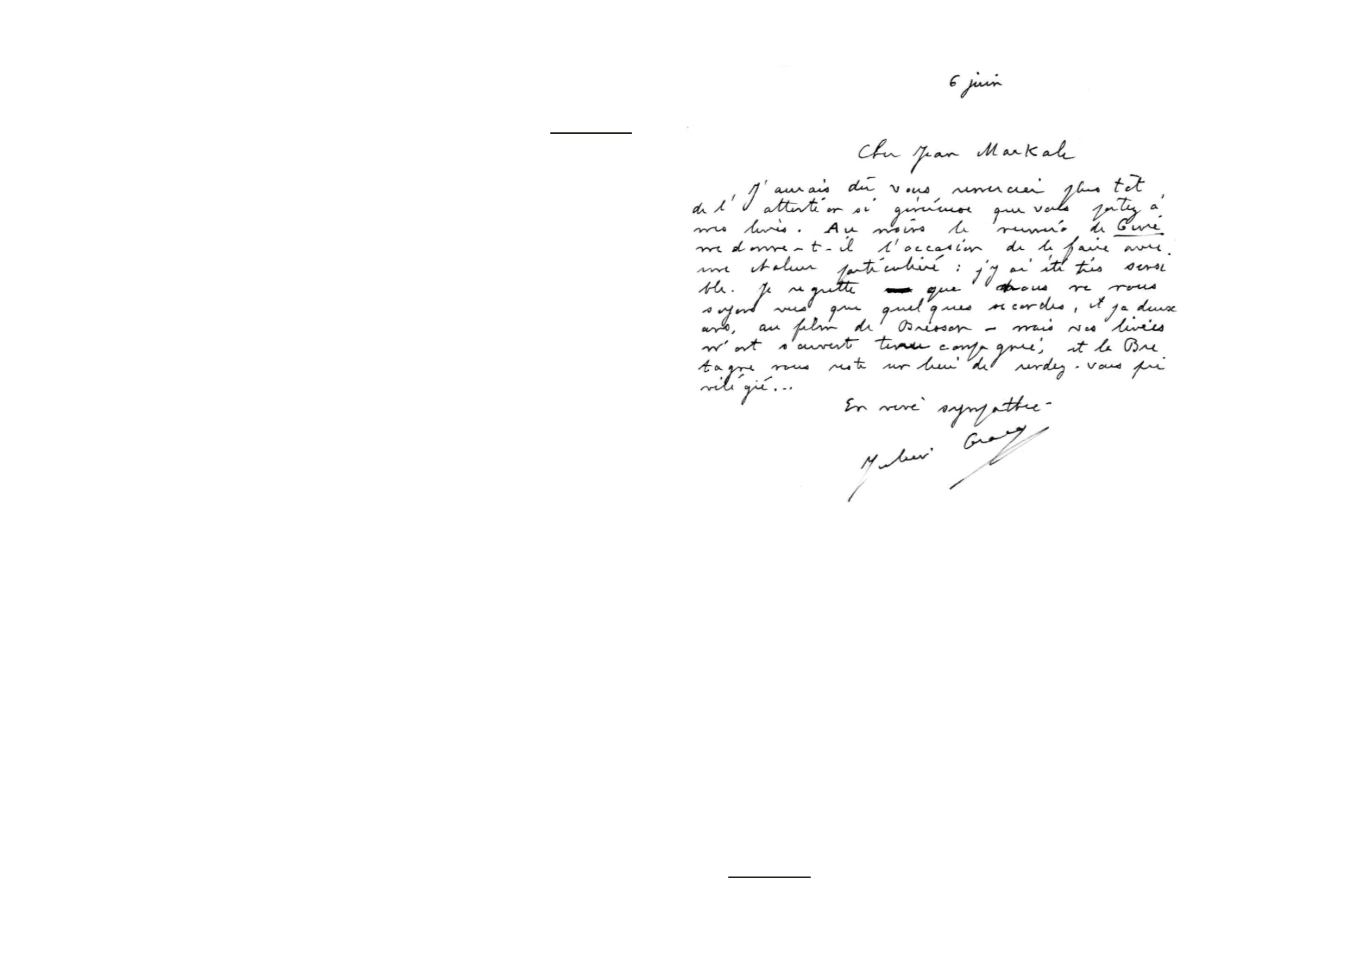 6 juin
Cher Jean Markale
J'aurais dû vous remercier plus tôt
de l'attention si généreuse que vous portez à
mes livres. Au moins le numéro de Givre
me donne-t-il l'occasion de le faire avec
une chaleur particulière : j'y ai été très sensi
ble. Je regrette que nous ne nous
soyons vus que quelques secondes, il y a deux
ans, au film de Bresson – mais vos livres
m'ont souvent tenu compagnie, et la Bre
tagne nous reste un lieu de rendez-vous pri
vilégié...
En vive sympathie –
Julien Gracq